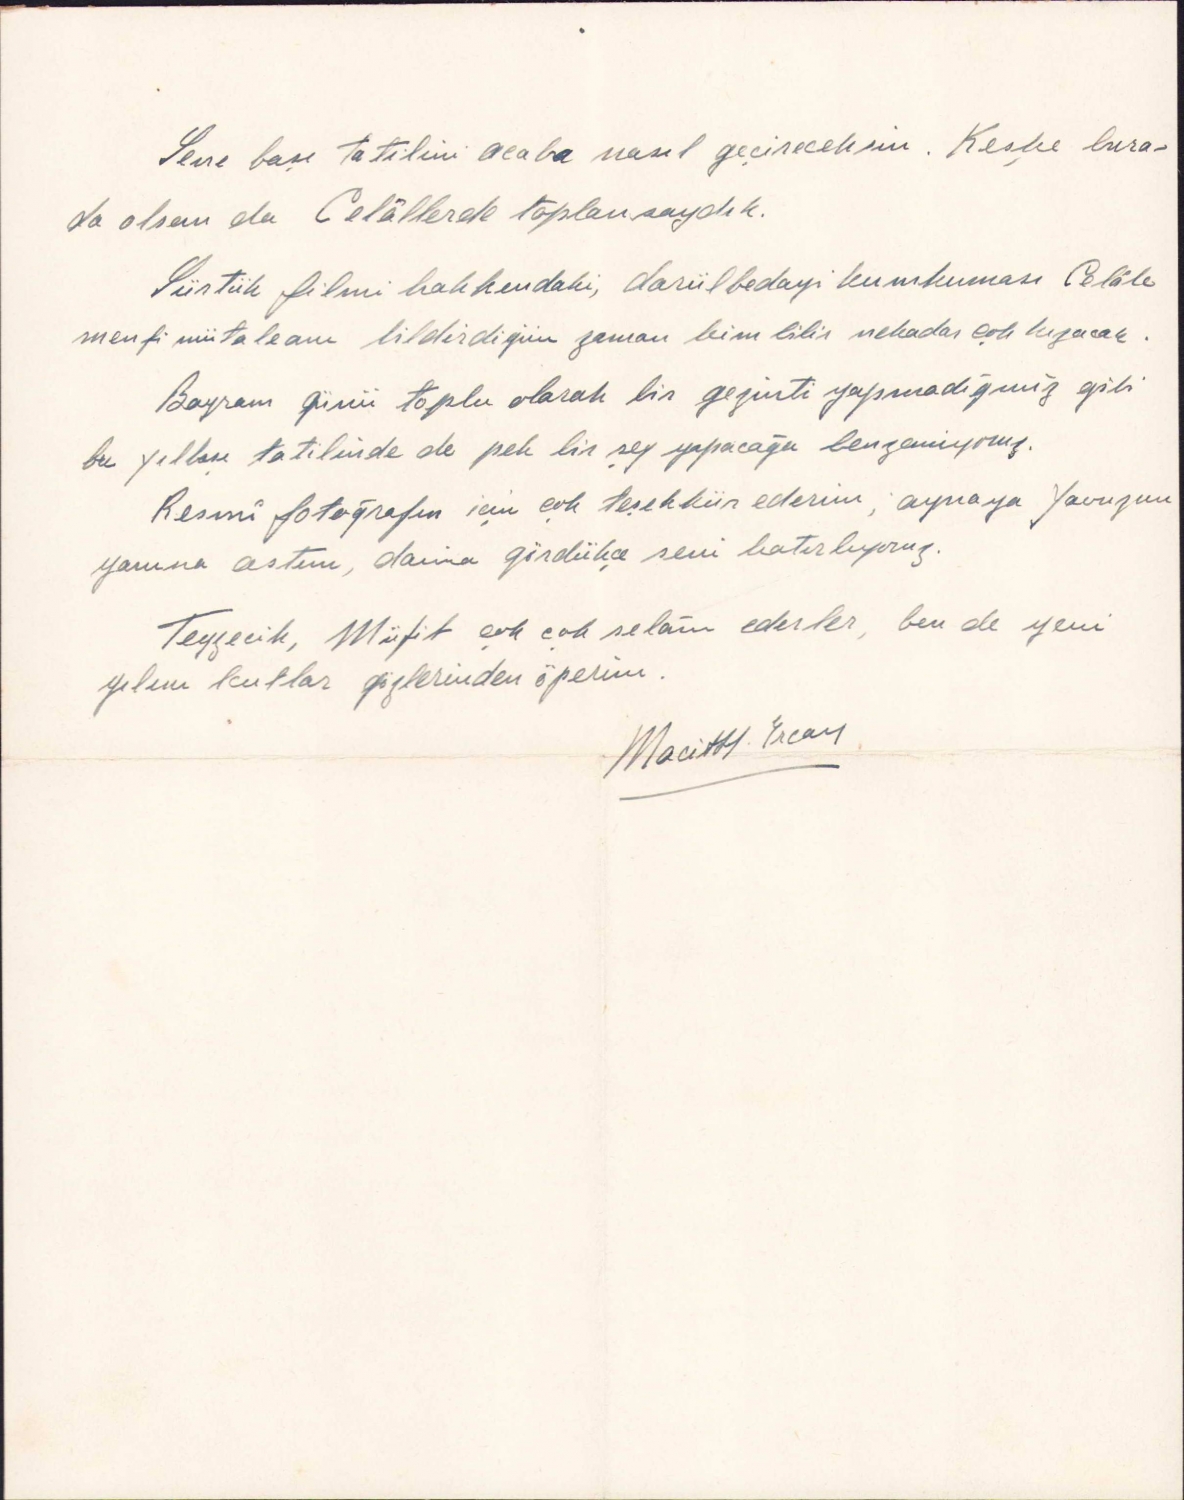 Sene başı tatilini acaba nasıl geçireceksin. Keşke bura-
da olsan da Celâllerde toplansaydık.
Sürtük filmi hakkındaki, darülbedayi kumkuması Celâle
menfi mütaleanı bildirdiğin zaman kim bilir nekadar çok kızacak.
Bayram günü toplu olarak bir gezinti yapmadığımız gibi
bu yılbaşı tatilinde de pek bir şey yapacağa benzemiyoruz.
Resmî fotoğrafın için çok teşekkür ederim, aynaya Yavuzun
yanına astım, daima gördükçe seni hatırlıyoruz.
Teyzecik, Müfit çok çok selâm ederler, ben de yeni
yılını kutlar gözlerinden öperim.
Macit